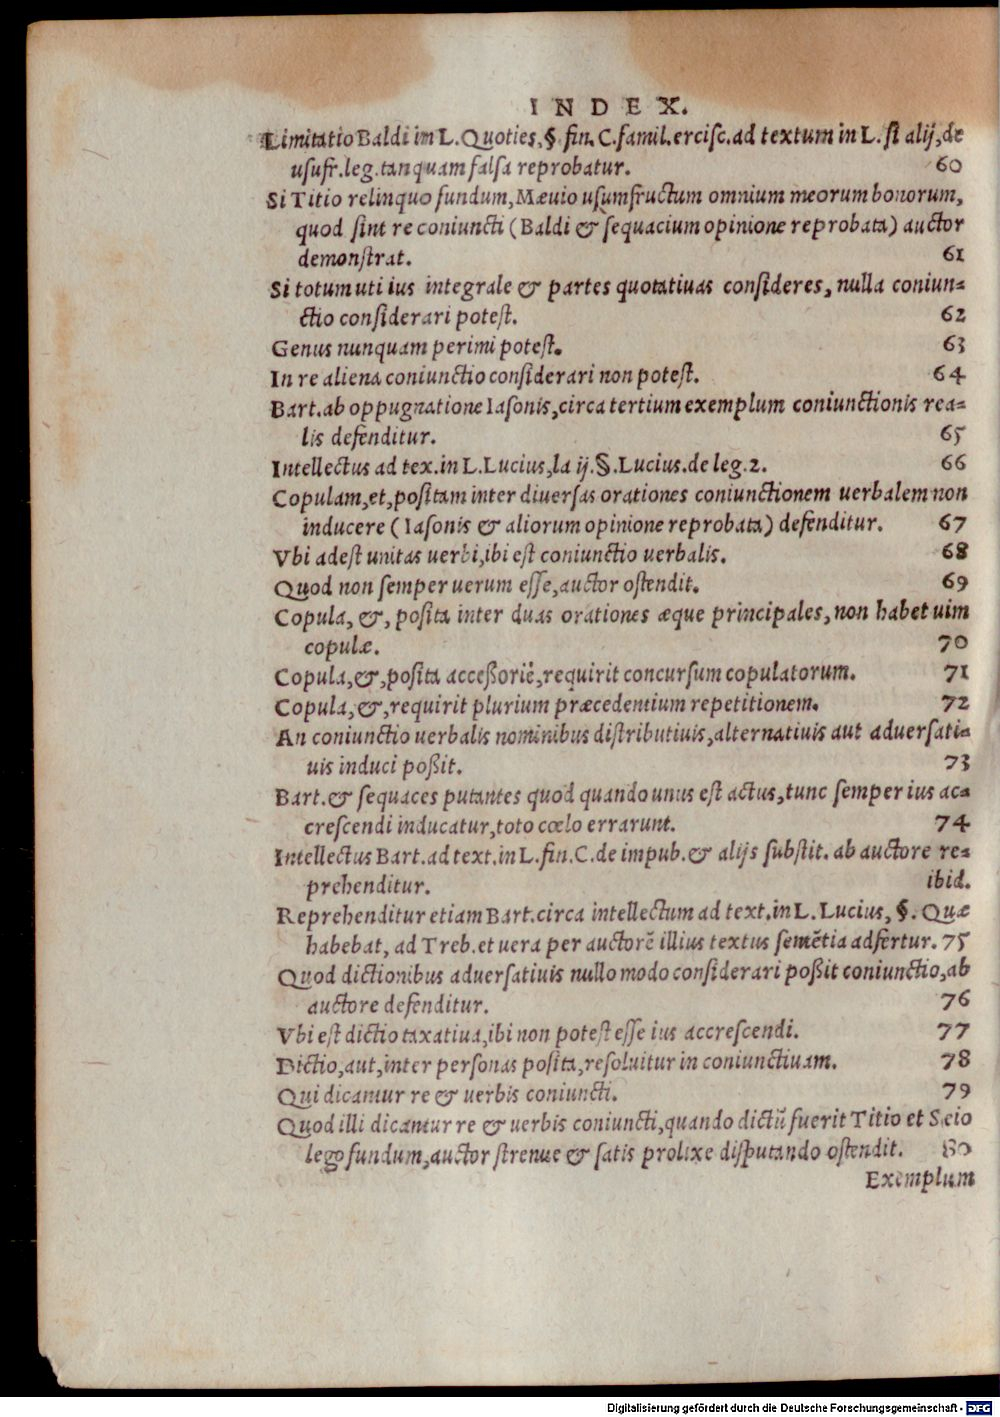 INDEX.
Limitatio Baldi im L. Quoties, §. fin. C. famil. ercisc. ad textum in L. si alij, de
usufr. leg. tanquam falsa reprobatur. 60
Si Titio relinquo fundum, Mæuio usumfructum omnium meorum bonorum,
quod sint re coniuncti (Baldi & sequacium opinione reprobata) auctor
demonstrat. 61
Si totum uti ius integrale & partes quotatiuas consideres, nulla coniun-
ctio considerari potest. 62
Genus nunquam perimi potest. 63
In re aliena coniunctio considerari non potest. 64
Bart. ab oppugnatione Iasonis, circa tertium exemplum coniunctionis rea-
lis defenditur. 65
Intellectus ad tex. in L. Lucius, la ij. §. Lucius. de leg. 2. 66
Copulam, et, positam inter diuersas orationes coniunctionem uerbalem non
inducere (Iasonis & aliorum opinione reprobata) defenditur. 67
Vbi adest unitas uerbi, ibi est coniunctio uerbalis. 68
Quod non semper uerum esse, auctor ostendit. 69
Copula, &, posita inter duas orationes æque principales, non habet uim
copulæ. 70
Copula, &, posita acceßoriè, requirit concursum copulatorum. 71
Copula, &, requirit plurium præcedentium repetitionem. 72
An coniunctio uerbalis nominibus distributiuis, alternatiuis aut aduersati-
uis induci poßit. 73
Bart. & sequaces putantes quod quando unus est actus, tunc semper ius ac-
crescendi inducatur, toto cœlo errarunt. 74
Intellectus Bart. ad text. in L. fin. C. de impub. & alijs substit. ab auctore re-
prehenditur. ibid.
Reprehenditur etiam Bart. circa intellectum ad text. in L. Lucius, §. Quæ
habebat, ad Treb. et uera per auctorē illius textus sentētia adfertur. 75
Quod dictionibus aduersatiuis nullo modo considerari poßit coniunctio, ab
auctore defenditur. 76
Vbi est dictio taxatiua, ibi non potest esse ius accrescendi. 77
Dictio, aut, inter personas posita, resoluitur in coniunctiuam. 78
Qui dicantur re & uerbis coniuncti. 79
Quod illi dicantur re & uerbis coniuncti, quando dictū fuerit Titio et Seio
lego fundum, auctor strenue & satis prolixe disputando ostendit. 80
Exemplum
Digitalisierung gefördert durch die Deutsche Forschungsgemeinschaft - DFG